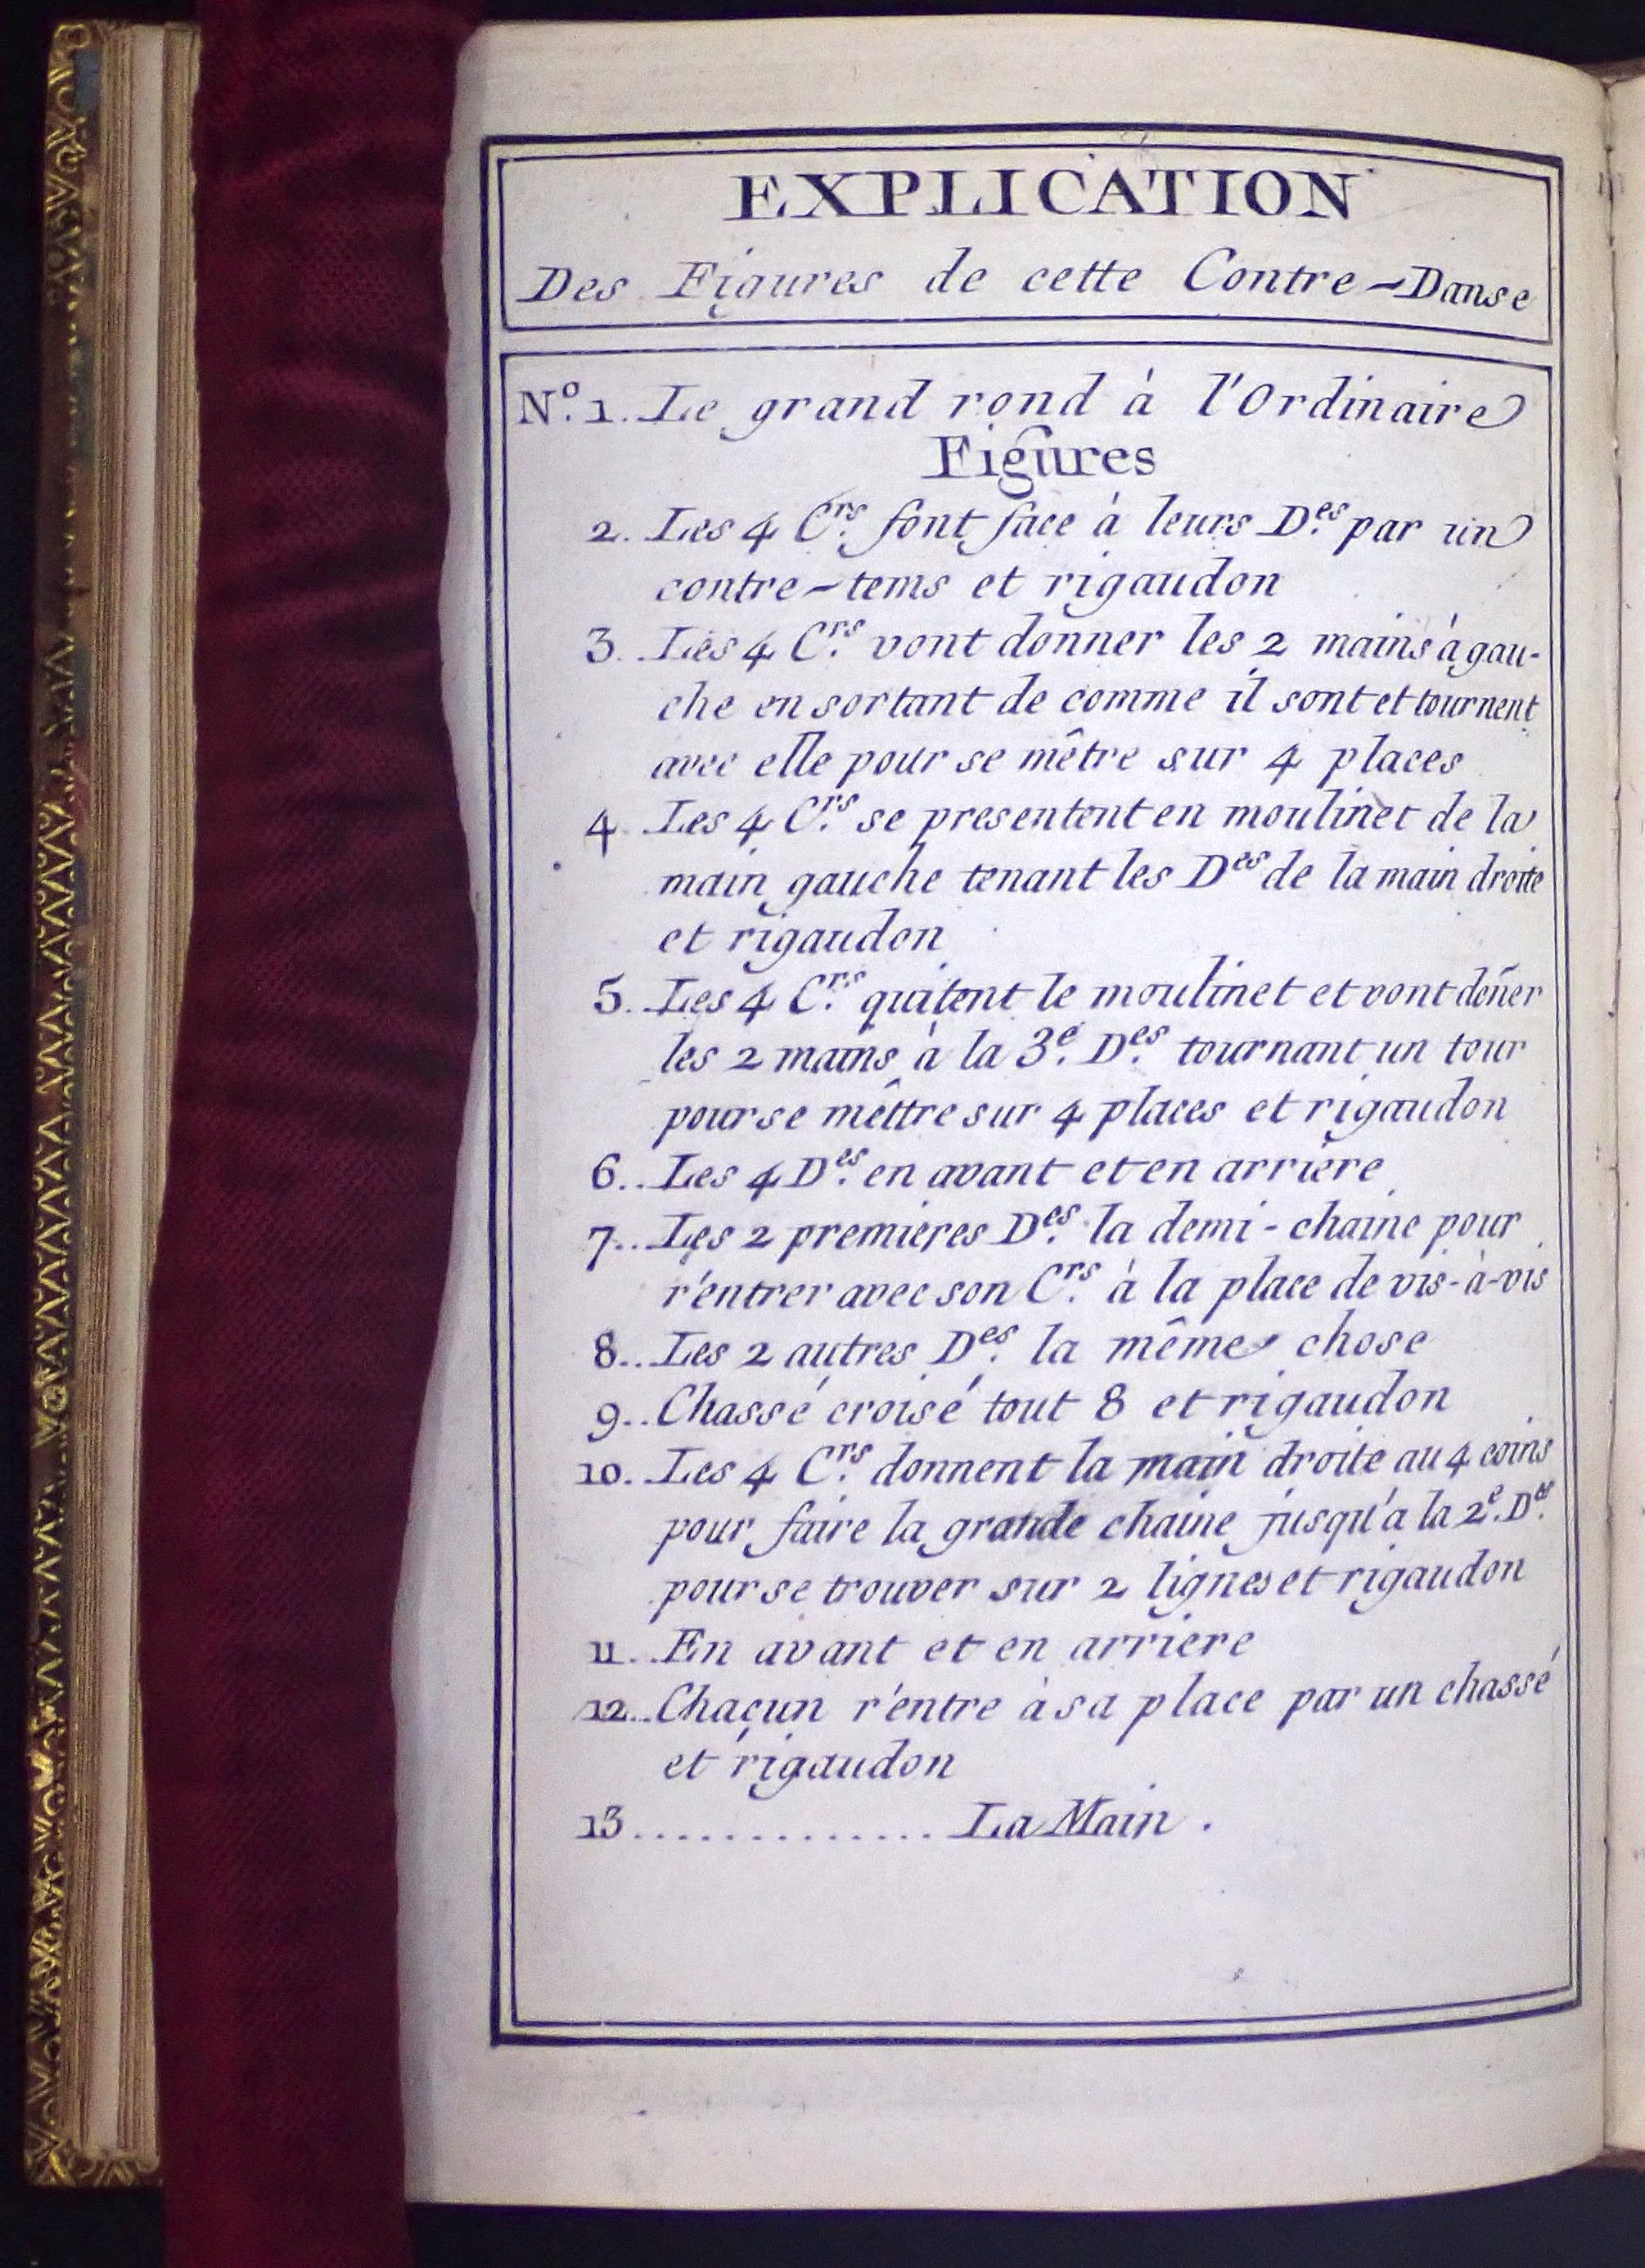 EXPLICATION
Des Figures de cette Contre-Danse
N.º 1. Le grand rond à l'Ordinaire
Figures
2. Les 4 C.rs font face à leurs D.es par un
contre-tems et rigaudon
3. Les 4 C.rs vont donner les 2 mains à gau-
che en sortant de comme il sont et tournent
avec elle pour se mêtre sur 4 places
4 Les 4 C.rs se presentent en moulinet de la
main gauche tenant les Des de la main droite
et rigaudon
5. Les 4 C.rs quitent le moulinet et vont dõner
les 2 mains à la 3.e D.es tournant un tour
pour se mêttre sur 4 places et rigaudon
6.. Les 4 D.es en avant et en arriere
7.. Les 2 premieres D.es la demi-chaine pour
r'entrer avec son C.rs à la place de vis-à-vis
8.. Les 2 autres D.es la même chose
9.. Chassé croisé tout 8 et rigaudon
10. Les 4 C.rs donnent la main droite au 4 coins
pour faire la grande chaine jusqu'a la 2.e D.es
pour se trouver sur 2 lignes et rigaudon
11. .En avant et en arriere
12... Chacun r'entre à sa place par un chassé
et rigaudon
13.............. La Main .